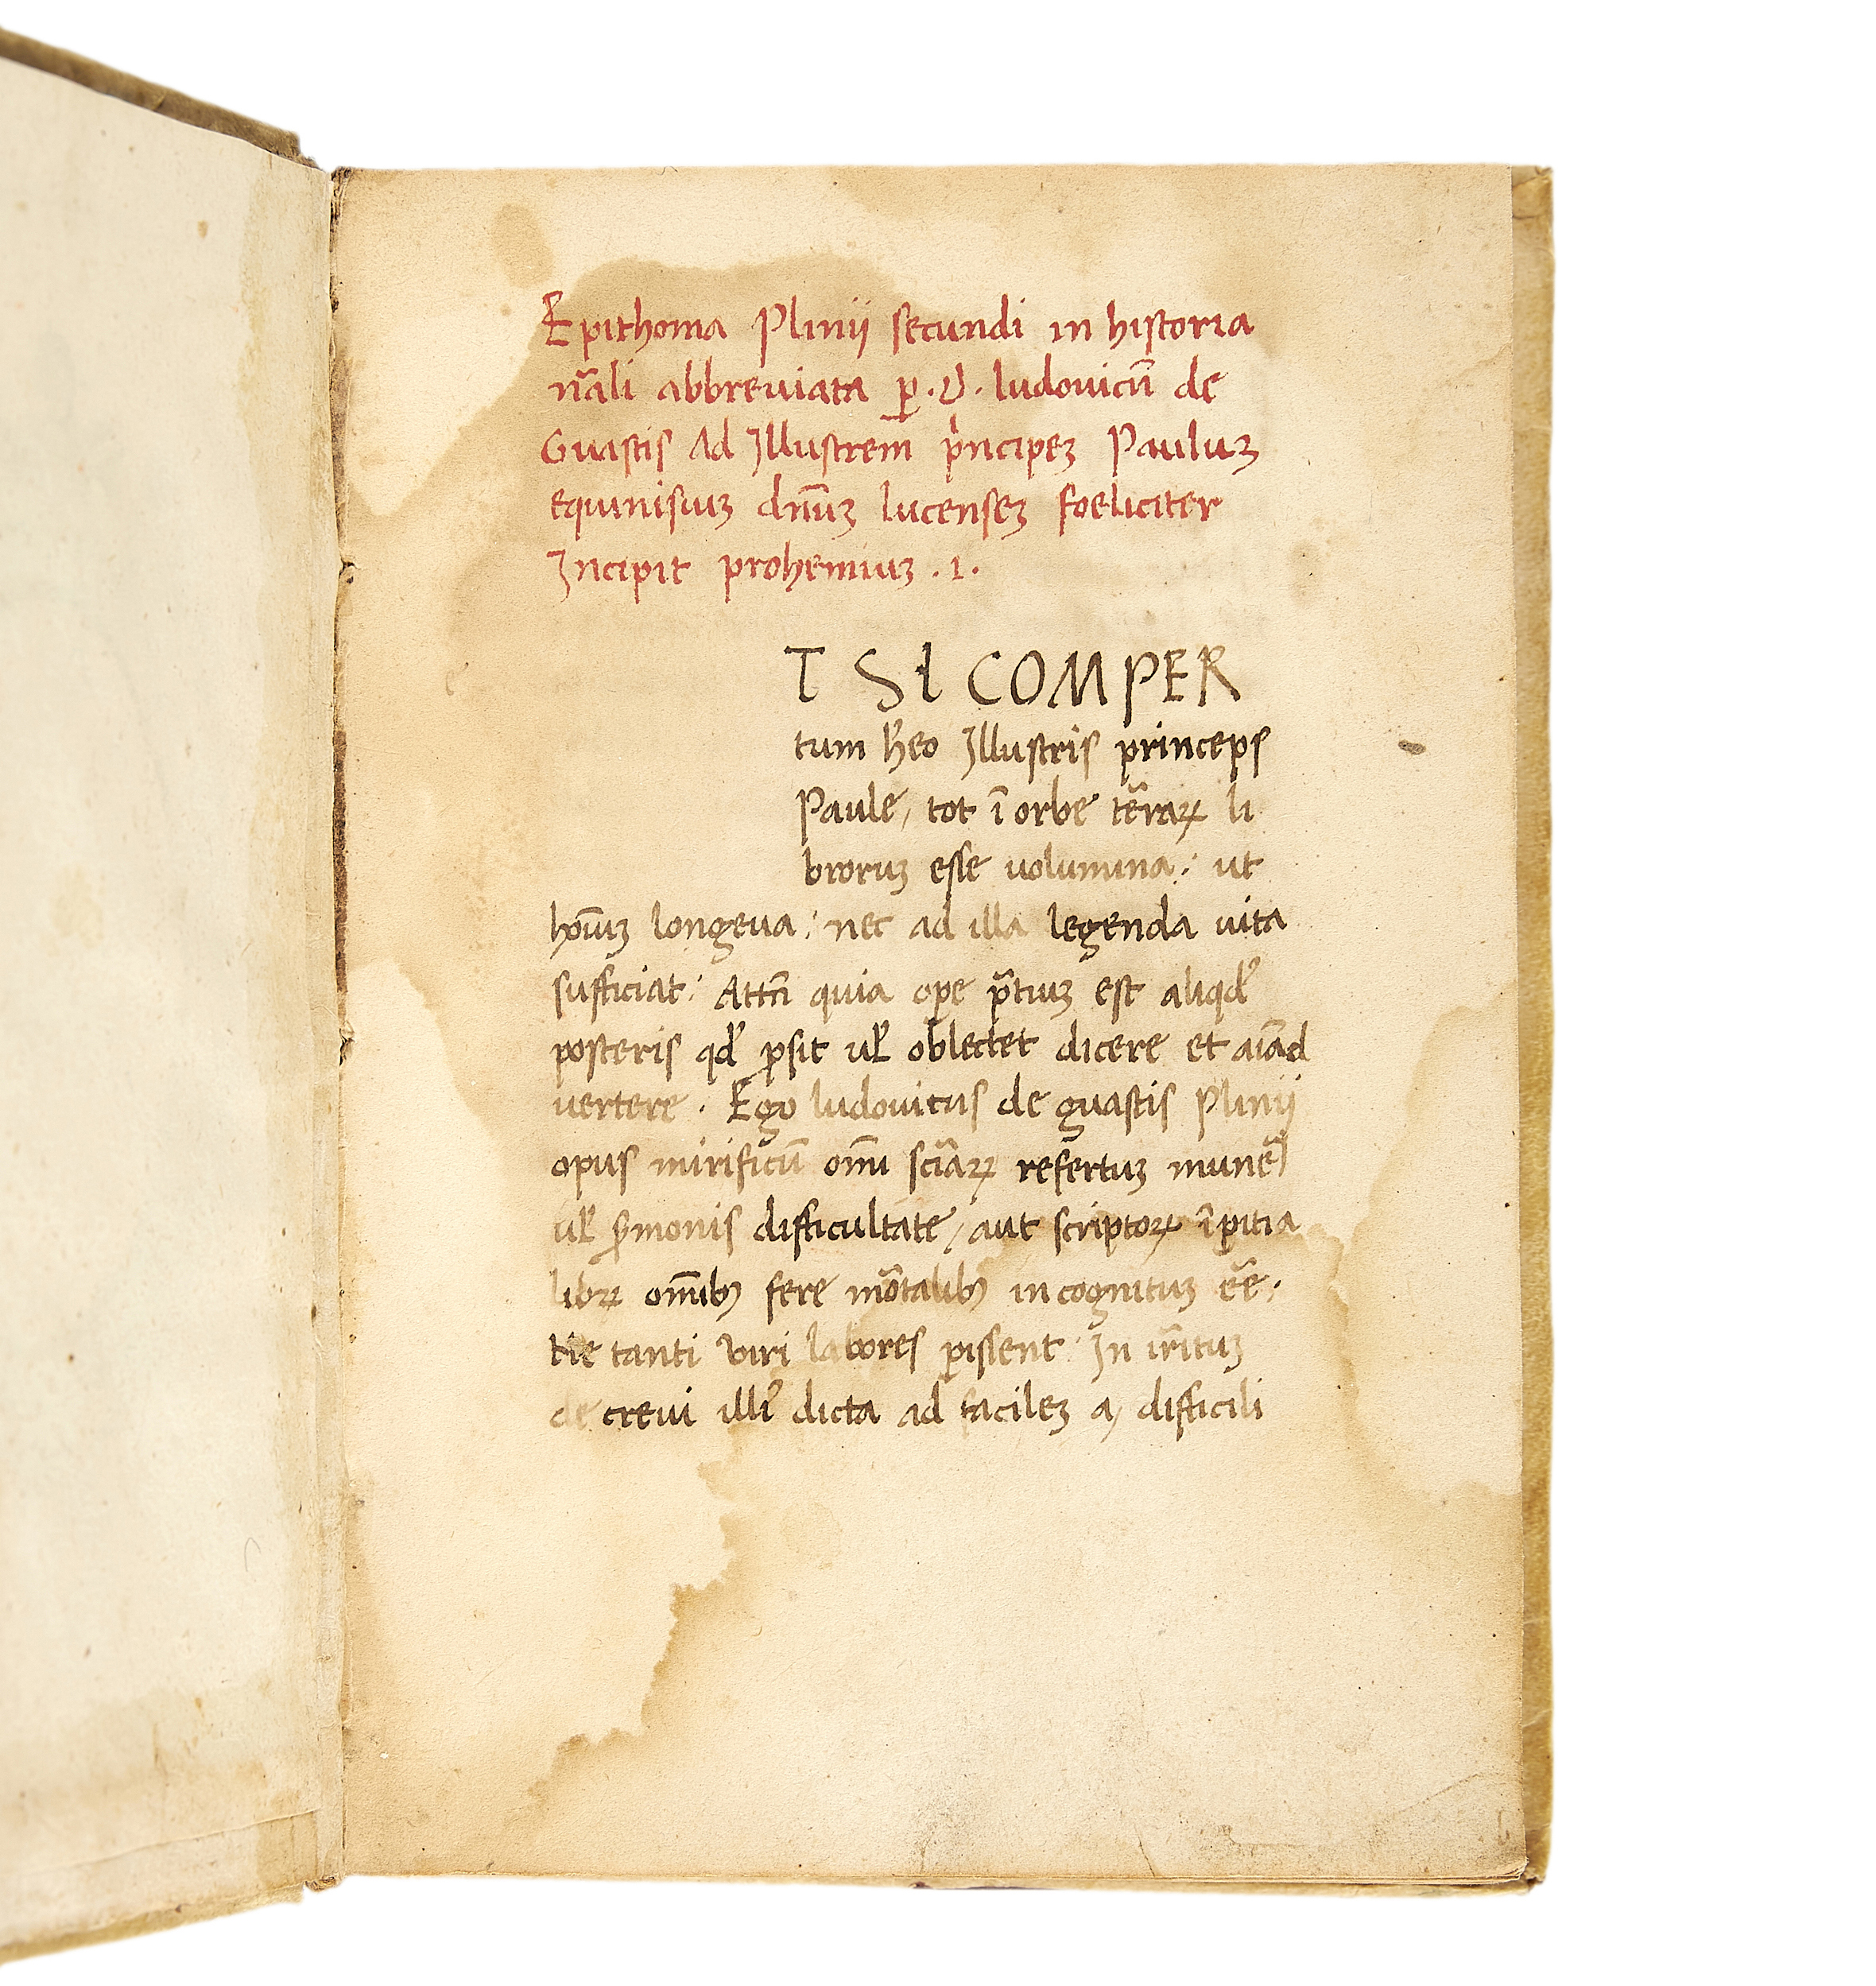 Epithoma Plinii secundi in historia
nãli abbreuiata ꝑ .D. ludouicũ de
Guastis Ad Illustrem̃ p̃ncipeꝫ Pauluꝫ
equinisiuꝫ dñuꝫ lucenseꝫ foeliciter
Incipit prohemiuꝫ .1.
T SI COMPER
tum h̃eo Illustris princeps
Paule, tot ĩ orbe tẽraꝝ li
broruꝫ esse uolumina: ut
hoĩuꝫ longeua: nec ad illa legenda uita
sufficiat: Attñ quia oꝑe p̃tiuꝫ est aliqd̾
posteris qd̾ ꝓsit ul̾ oblectet dicere et aĩad
uertere. Ego ludouicus de guastis Plinii
opus mirificũ om̃i sciãꝝ refertuꝫ munẽ
ul̾ s̃monis difficultate, aut scriptoꝝ ĩꝑitia
libꝝ om̃ibꝰ fere mõtalibꝰ incognituꝫ eẽ.
Ne tanti viri labores ꝑissent In irrituꝫ
decreui illiꝰ dicta ad facileꝫ a, difficili